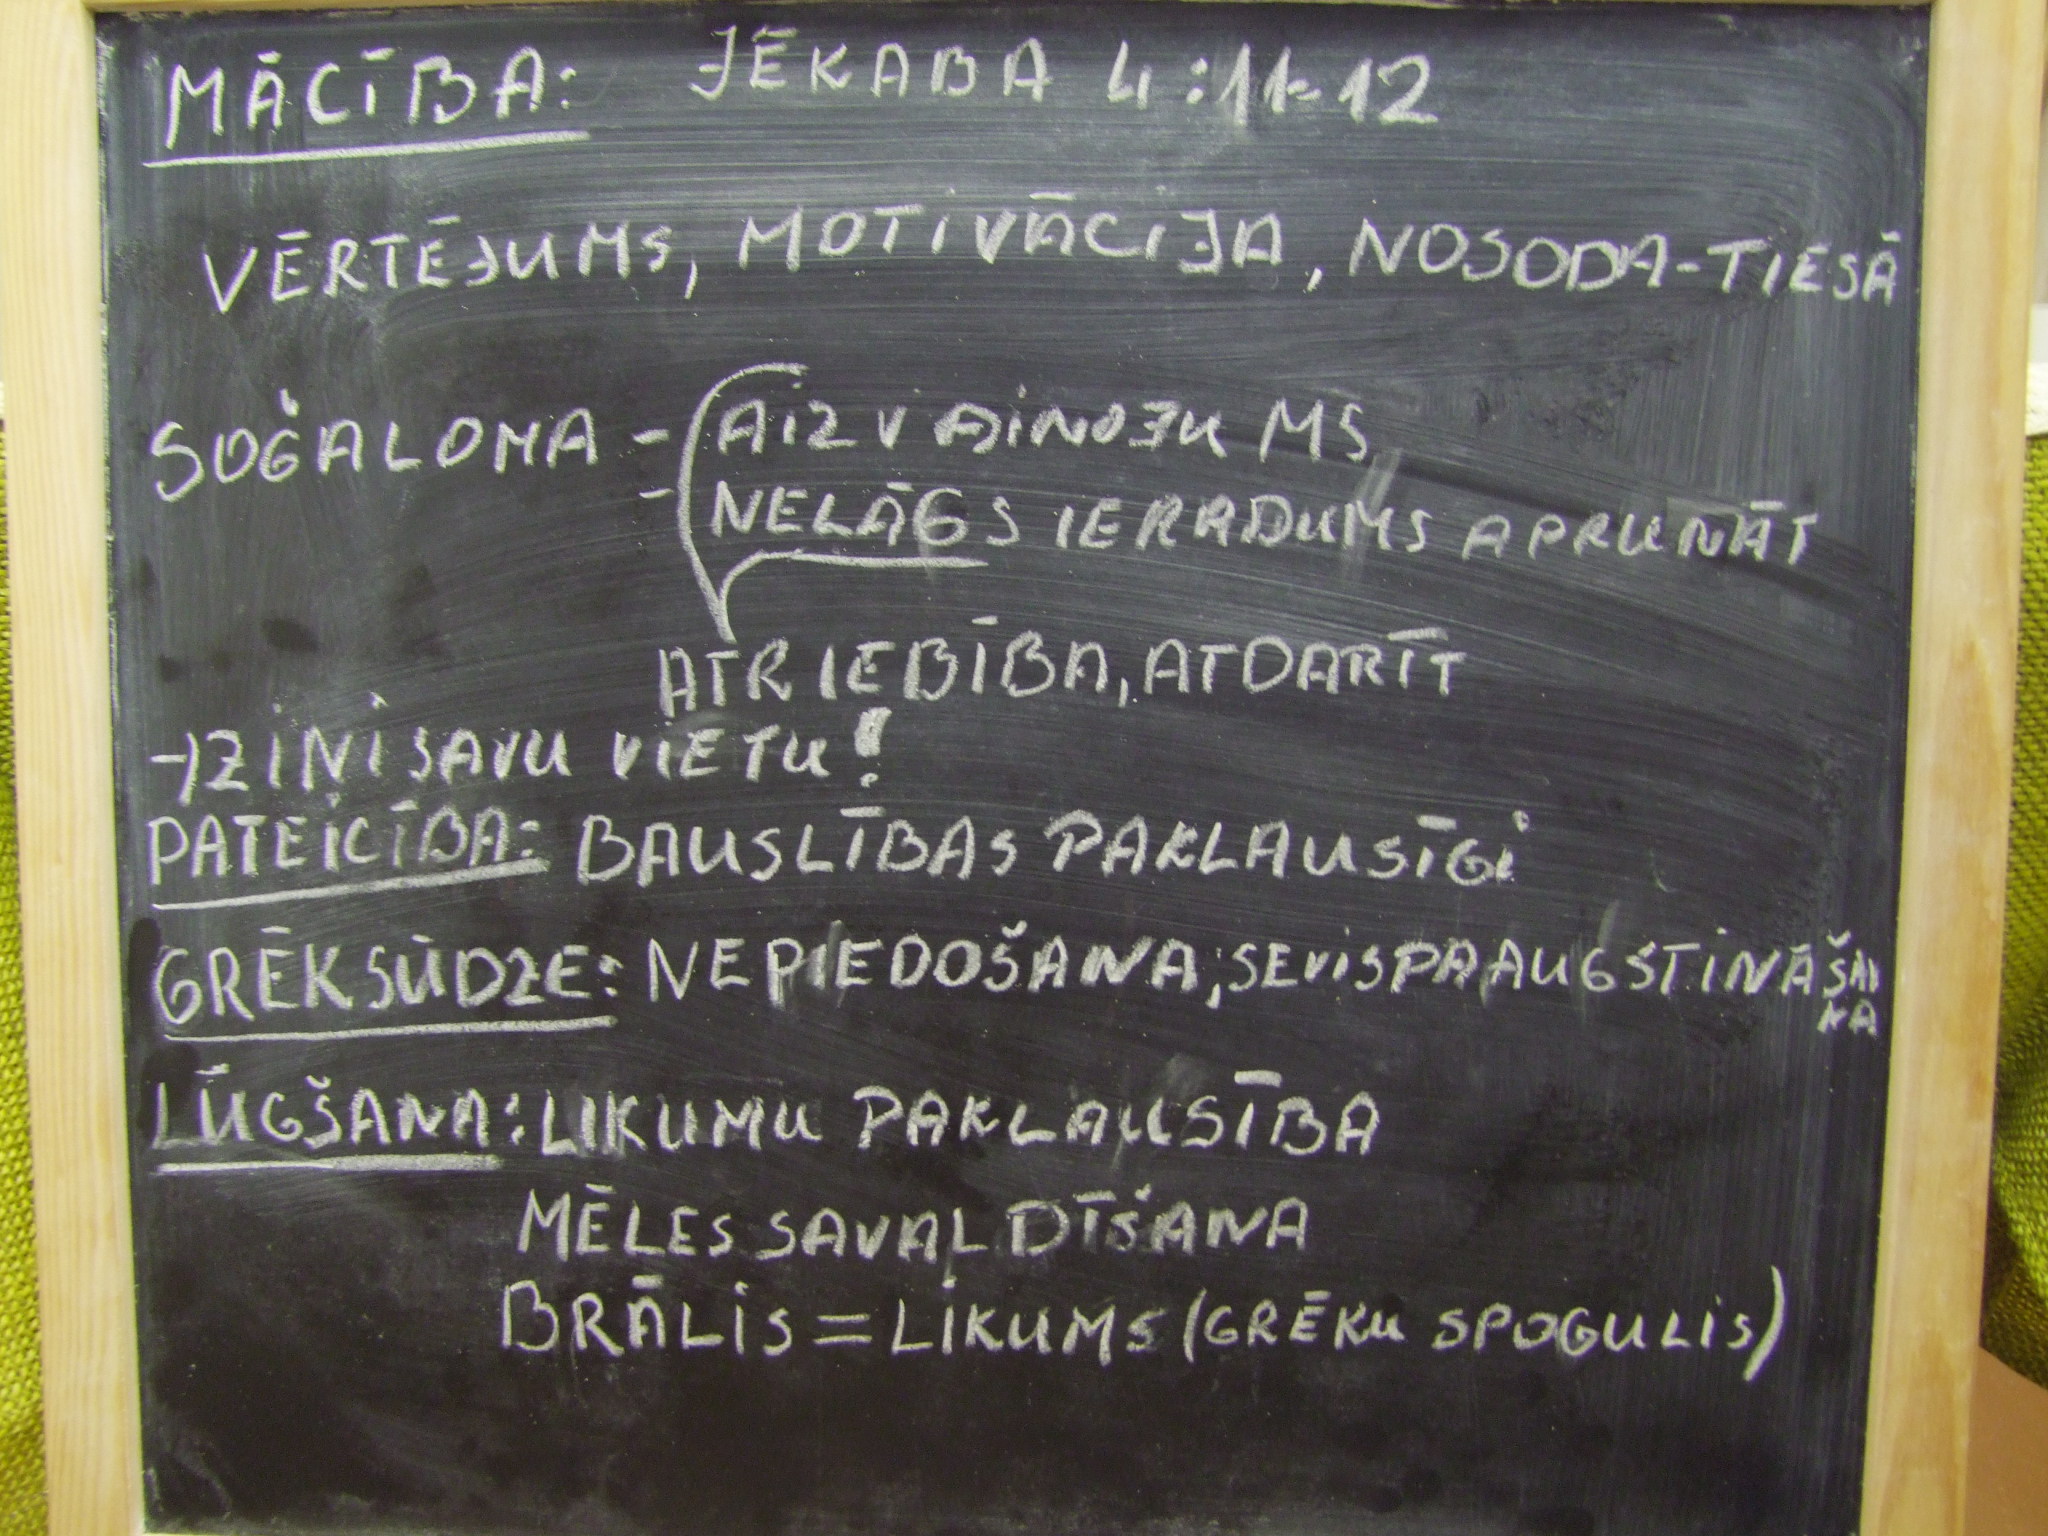 MĀCĪBA: JĒKABA 4:11-12
VĒRTĒJUMS, MOTIVĀCIJA, NOSODA-TIESĀ
SOĢALOMA - AIZVAINOJUMS
- NELĀGS IERADUMS APRUNĀT
ATRIEBĪBA, ATDARĪT
ZIŅI SAVU VIETU!
PATEICĪBA: BAUSLĪBAS PAKLAUSĪGI
GRĒKSŪDZE: NEPIEDOŠANA; SEVIS PAAUGSTINĀŠA
NA
LŪGŠANA: LIKUMU PAKLAUSĪBA
MĒLES SAVALDĪŠANA
BRĀLIS = LIKUMS (GRĒKU SPOGULIS)